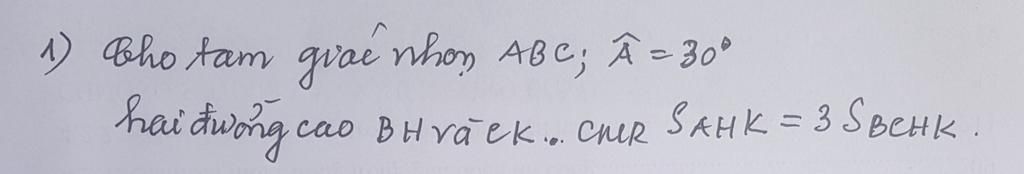 1) Cho tam giác nhọn ABC; Â = 30°
hai đường cao BH và CK... CMR S_AHK = 3 S_BCHK.